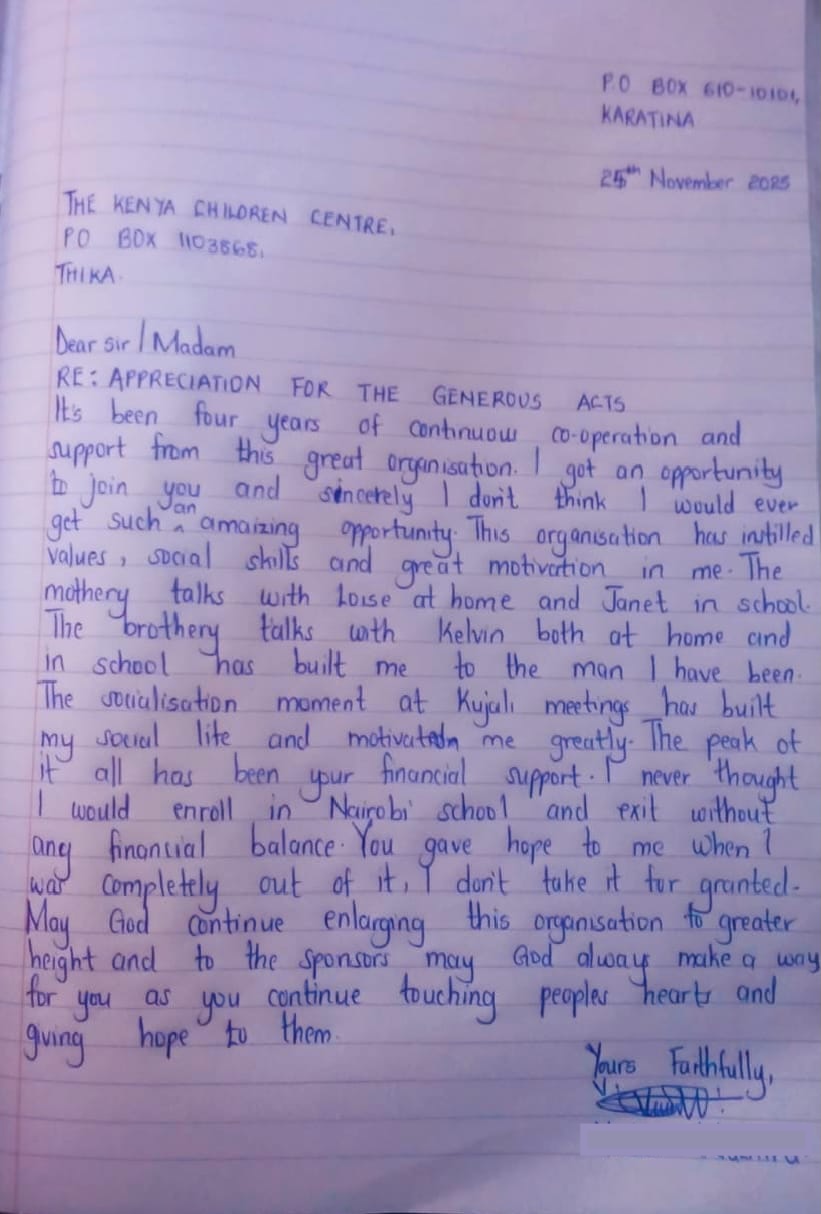 P.O BOX 610-10101,
KARATINA
25th November 2025
THE KENYA CHILDREN CENTRE,
PO BOX 1103868,
THIKA.
Dear sir / Madam
RE: APPRECIATION FOR THE GENEROUS ACTS
It's been four years of continuow co-operation and
support from this great organisation. I got an opportunity
to join you and sincerely I don't think I would ever
get such an amaizing opportunity. This organisation has instilled
values, social skills and great motivation in me. The
mothery talks with Loise at home and Janet in school.
The brothery talks with Kelvin both at home and
in school has built me to the man I have been.
The socialisation moment at Kujali meetings has built
my social life and me greatly. The peak of
it all has been your financial support. I never thought
I would enroll in Nairobi school and exit without
any financial balance. You gave hope to me when I
was completely out of it, I don't take it for granted.
May God continue enlarging this organisation to greater
height and to the sponsors may God always make a way
for you as you continue touching peoples hearts and
giving hope to them.
Yours Faithfully,